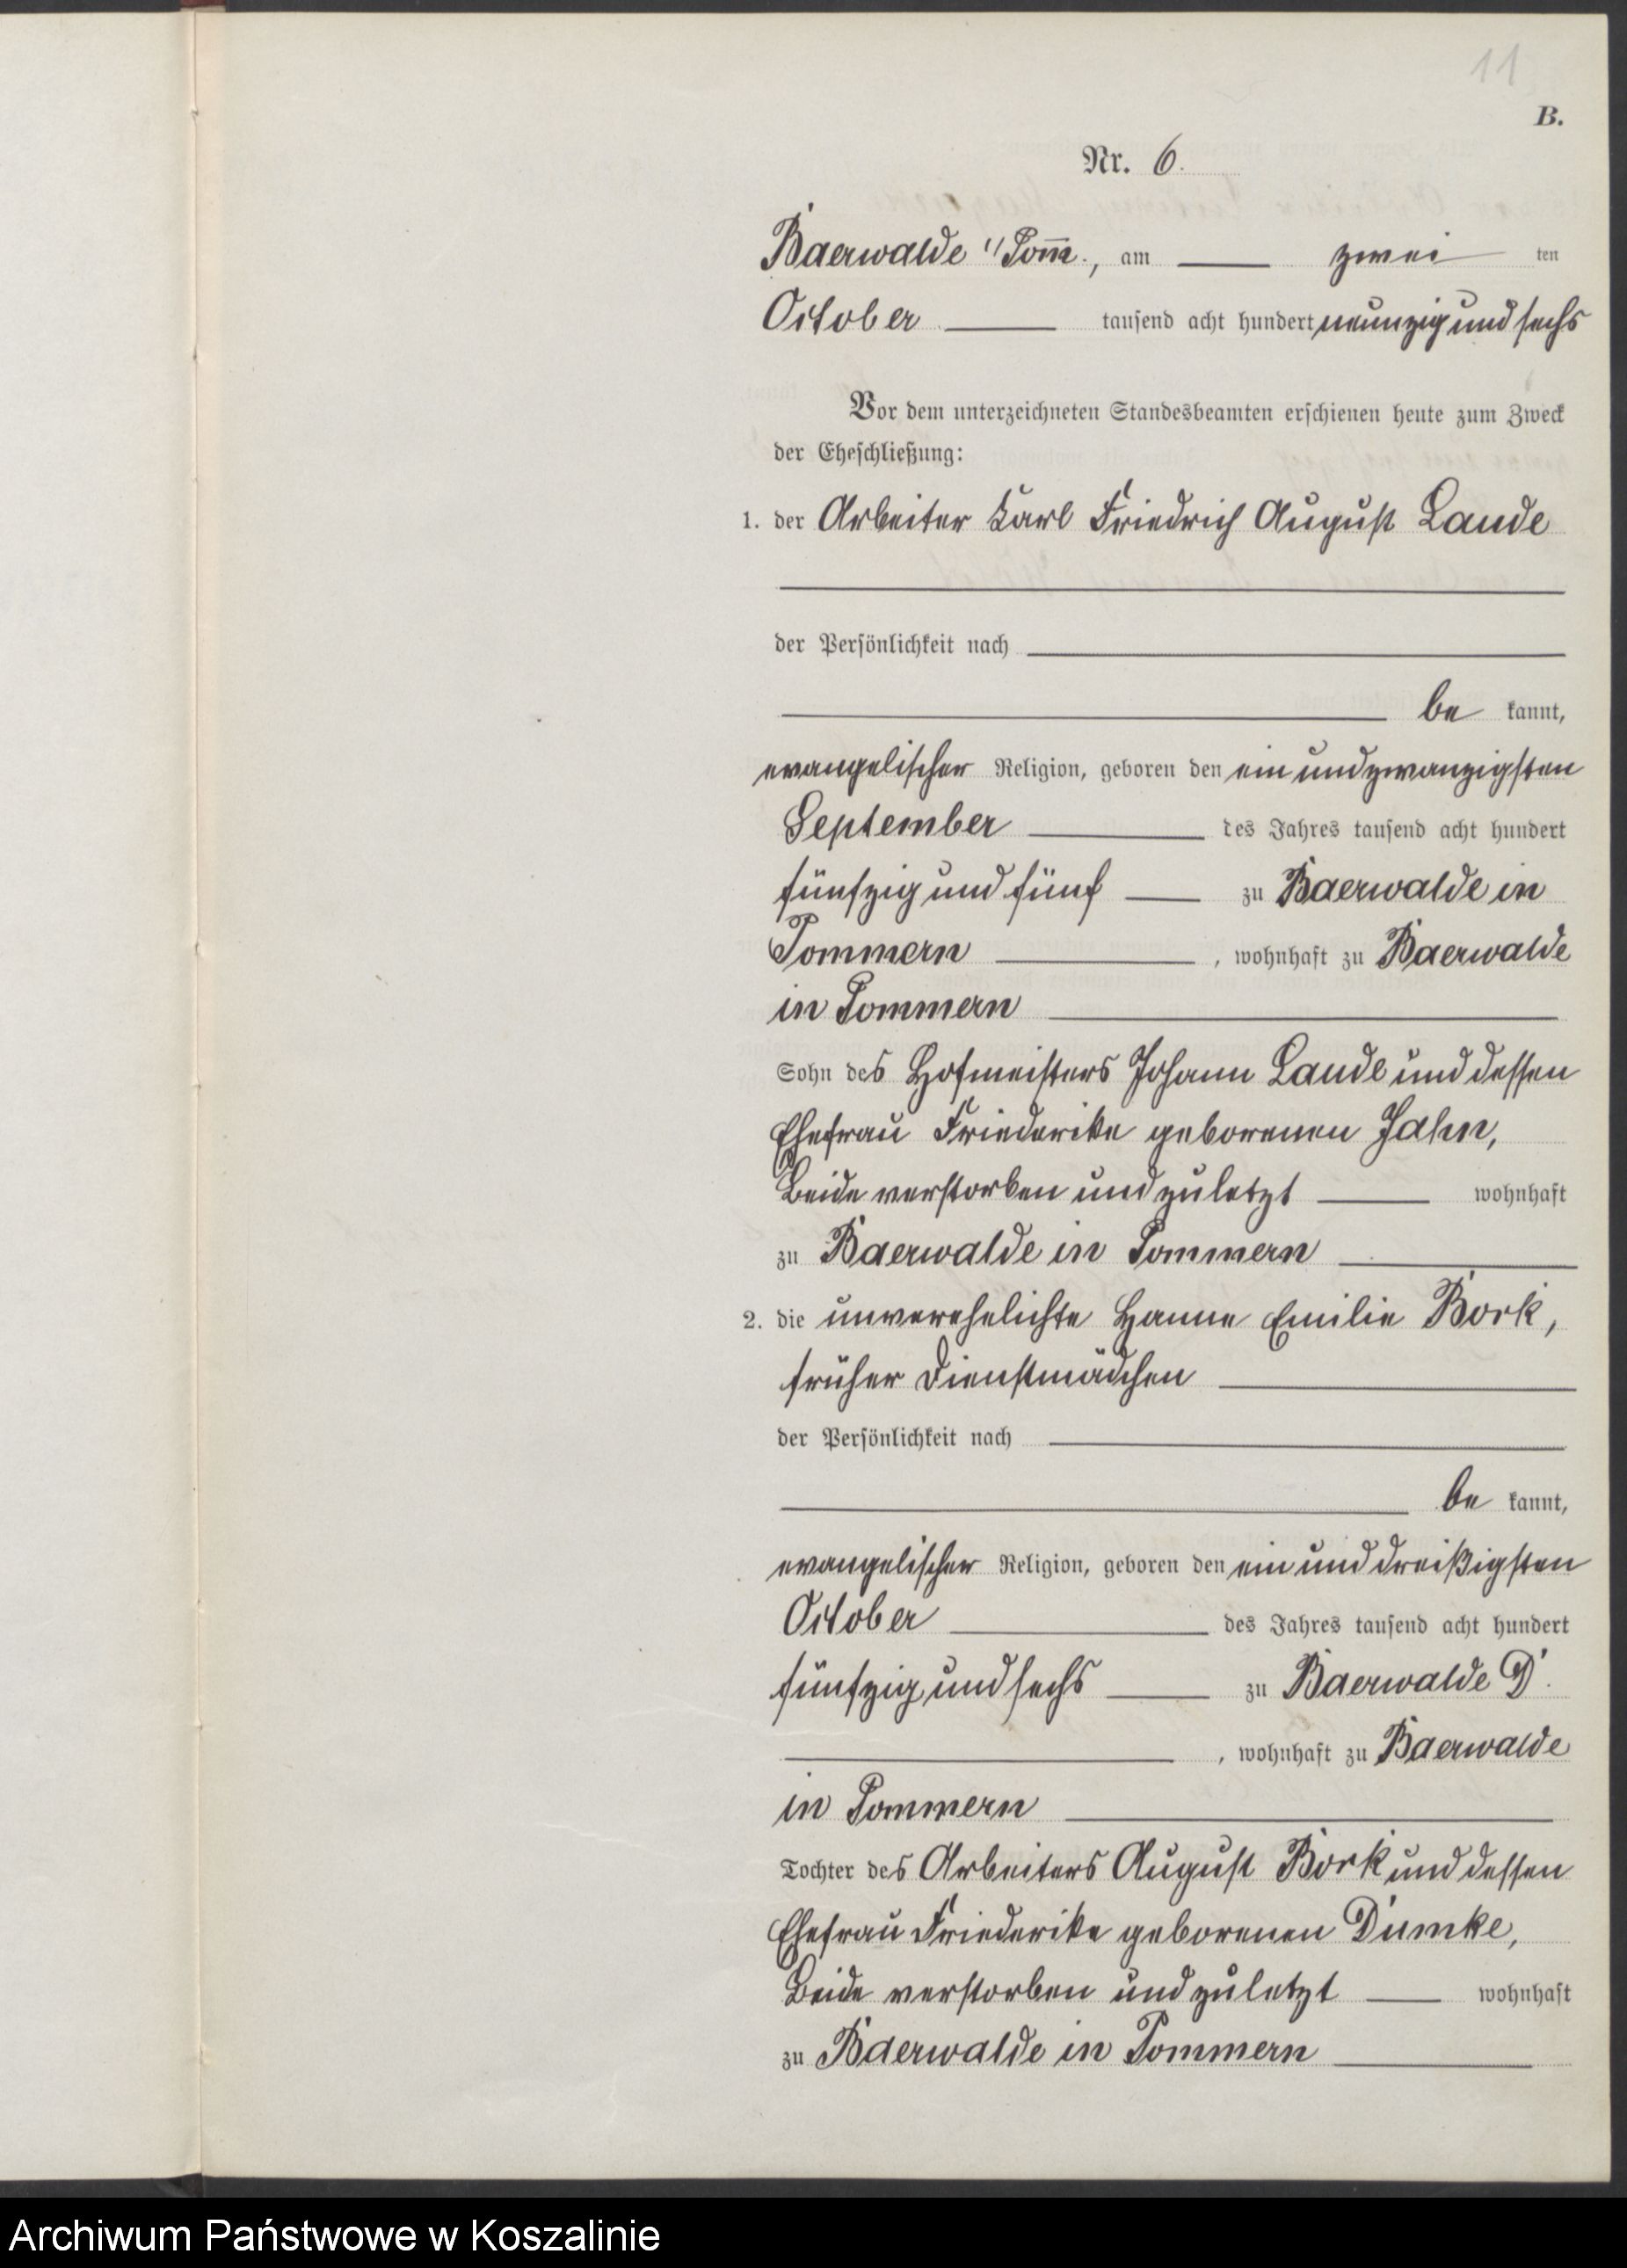 11
B.
Nr. 6.
Baerwalde i/Pom̅., am zwei ten
October tausend acht hundert neunzig und sechs
Vor dem unterzeichneten Standesbeamten erschienen heute zum Zweck
der Eheschließung:
1. der Arbeiter Karl Friedrich August Laude
der Persönlichkeit nach
be kannt,
evangelischer Religion, geboren den ein und zwanzigsten
September des Jahres tausend acht hundert
fünfzig und fünf zu Baerwalde in
Pommern, wohnhaft zu Baerwalde
in Pommern
Sohn des Hofmeisters Johann Laude und dessen
Ehefrau Friederike geborenen Jahn,
Beide verstorben und zuletzt wohnhaft
zu Baerwalde in Pommern
2. die unverehelichte Hanne Emilie Bork,
früher Dienstmädchen
der Persönlichkeit nach
be kannt,
evangelischer Religion, geboren den ein und dreißigsten
October des Jahres tausend acht hundert
fünfzig und sechs zu Baerwalde D.
, wohnhaft zu Baerwalde
in Pommern
Tochter des Arbeiters August Bork und dessen
Ehefrau Friederike geborenen Dumke,
Beide verstorben und zuletzt wohnhaft
zu Baerwalde in Pommern
Archiwum Państwowe w Koszalinie